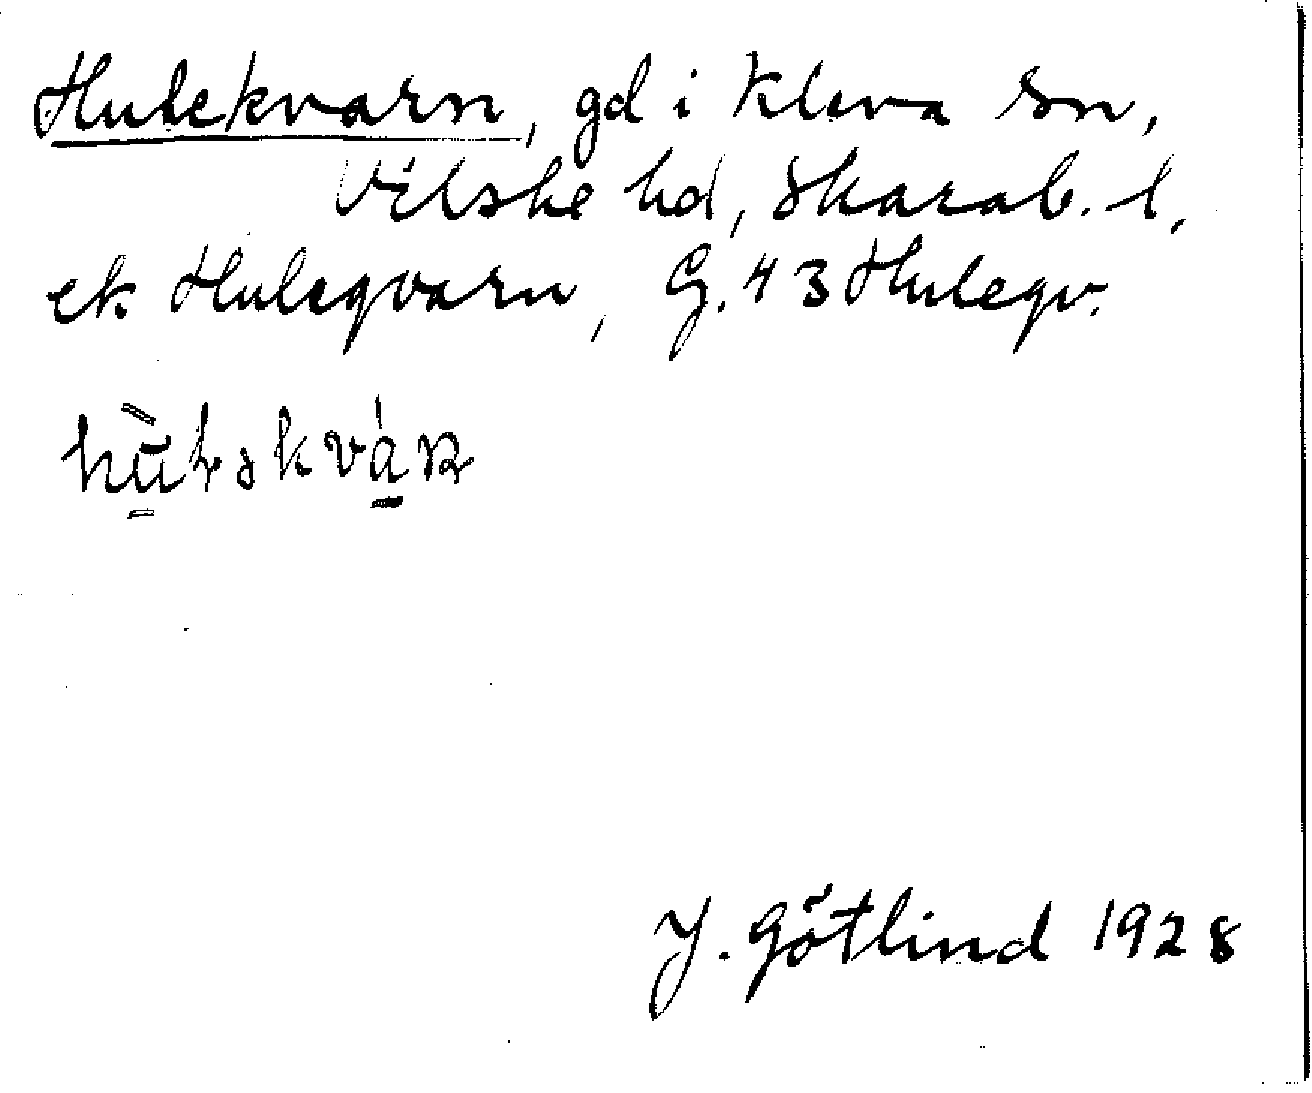 Hulekvarn, gd i Kleva sn,
Vilske hd, Skarab. l.
ek Hulegvarn, G. 43 Huleqv.
J. Götlind 1928